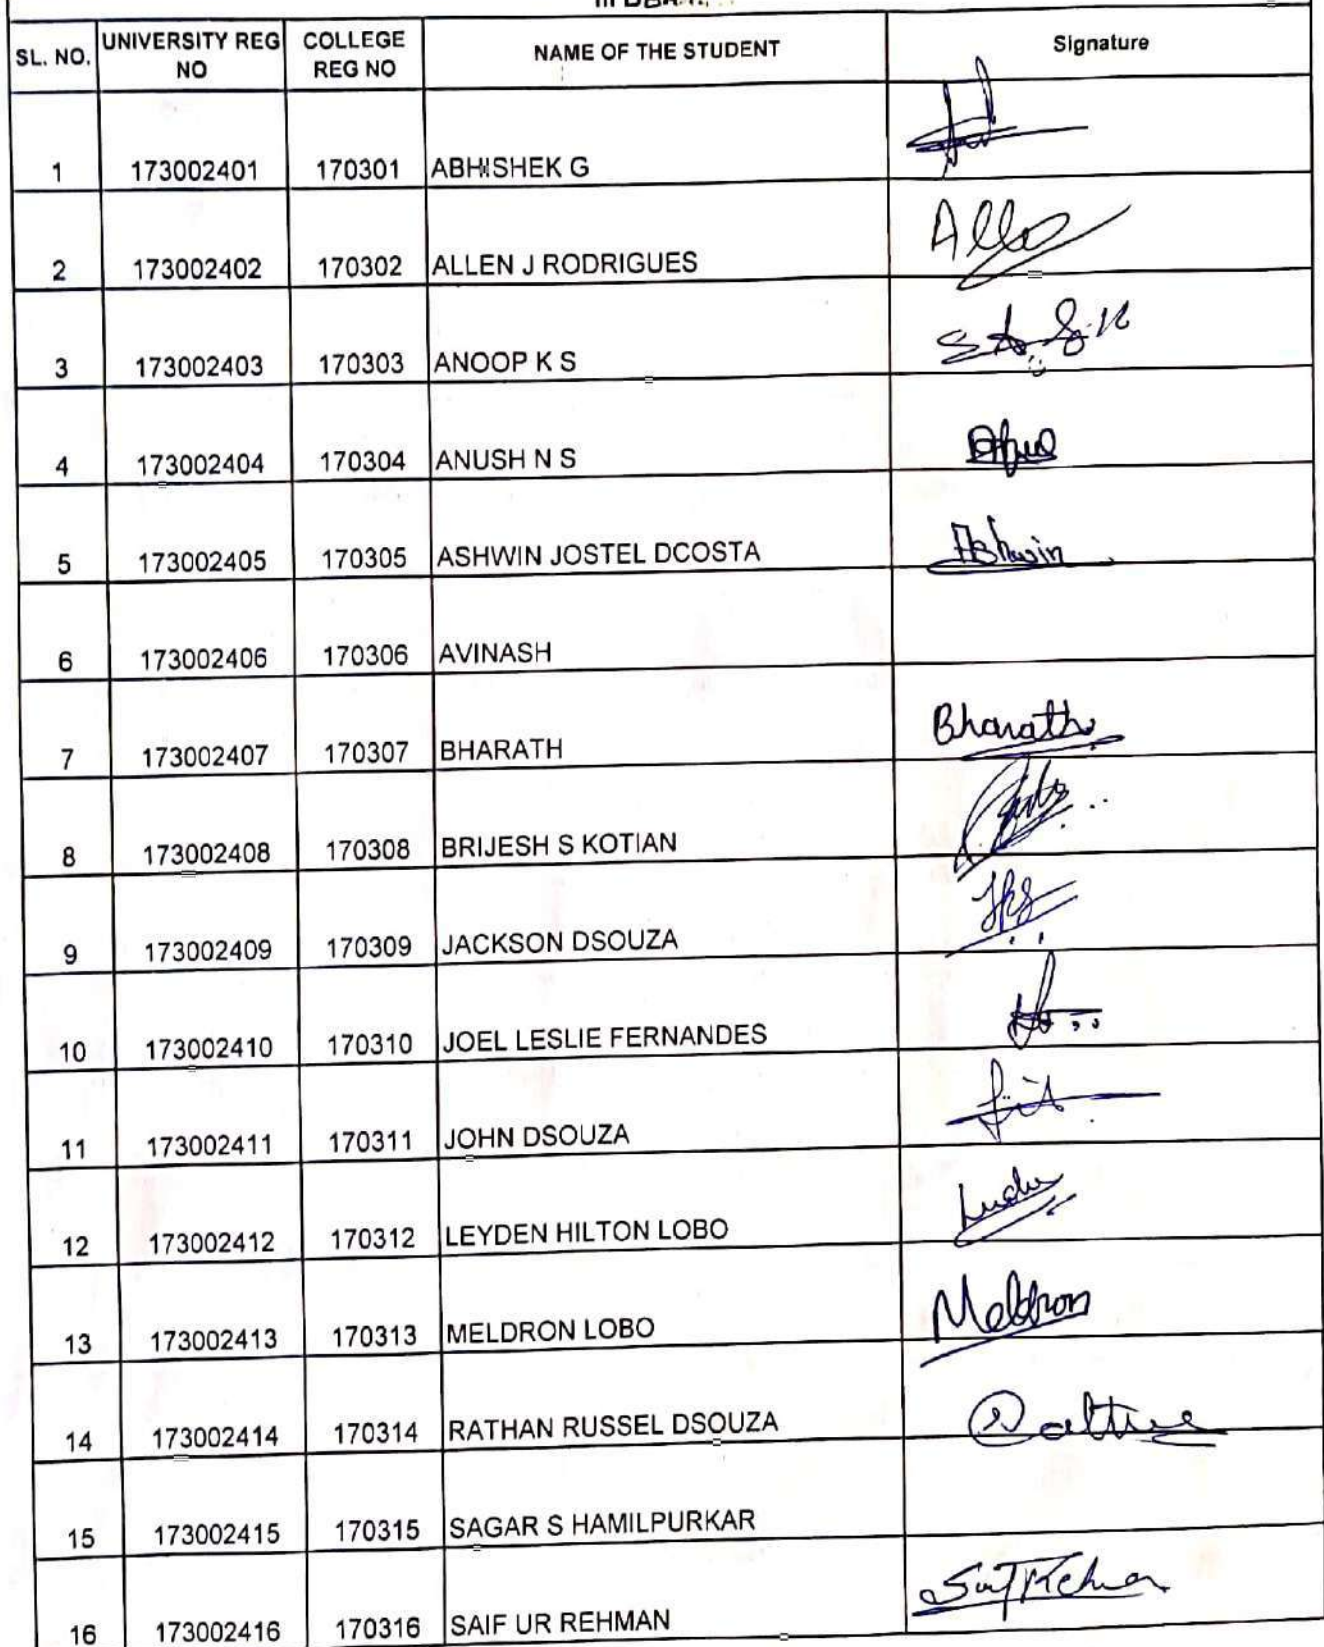 SL. NO. UNIVERSITY REG NO COLLEGE REG NO NAME OF THE STUDENT Signature
1 173002401 170301 ABHISHEK G
2 173002402 170302 ALLEN J RODRIGUES
3 173002403 170303 ANOOP K S
4 173002404 170304 ANUSH N S
5 173002405 170305 ASHWIN JOSTEL DCOSTA Ashwin
6 173002406 170306 AVINASH
7 173002407 170307 BHARATH Bharath
8 173002408 170308 BRIJESH S KOTIAN
9 173002409 170309 JACKSON DSOUZA
10 173002410 170310 JOEL LESLIE FERNANDES
11 173002411 170311 JOHN DSOUZA
12 173002412 170312 LEYDEN HILTON LOBO
13 173002413 170313 MELDRON LOBO Meldron
14 173002414 170314 RATHAN RUSSEL DSOUZA
15 173002415 170315 SAGAR S HAMILPURKAR
16 173002416 170316 SAIF UR REHMAN